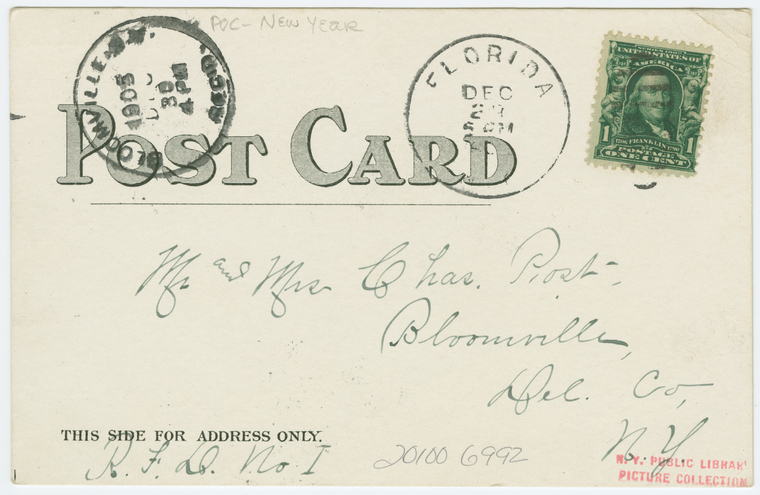 POC - NEW YEAR
BLOOMVILLE N.Y.
1905
DEC
30
4 PM
REC'D.
FLORIDA
DEC
29
PM
SERIES 1902
UNITED STATES OF
AMERICA
1706 FRANKLIN 1790
1 POSTAGE 1
ONE CENT
POST CARD
Mr and Mrs Chas. Post,
Bloomville,
Del. Co,
N.Y.
THIS SIDE FOR ADDRESS ONLY.
R.F.D. No I
20100 6992
N.Y. PUBLIC LIBRARY
PICTURE COLLECTION